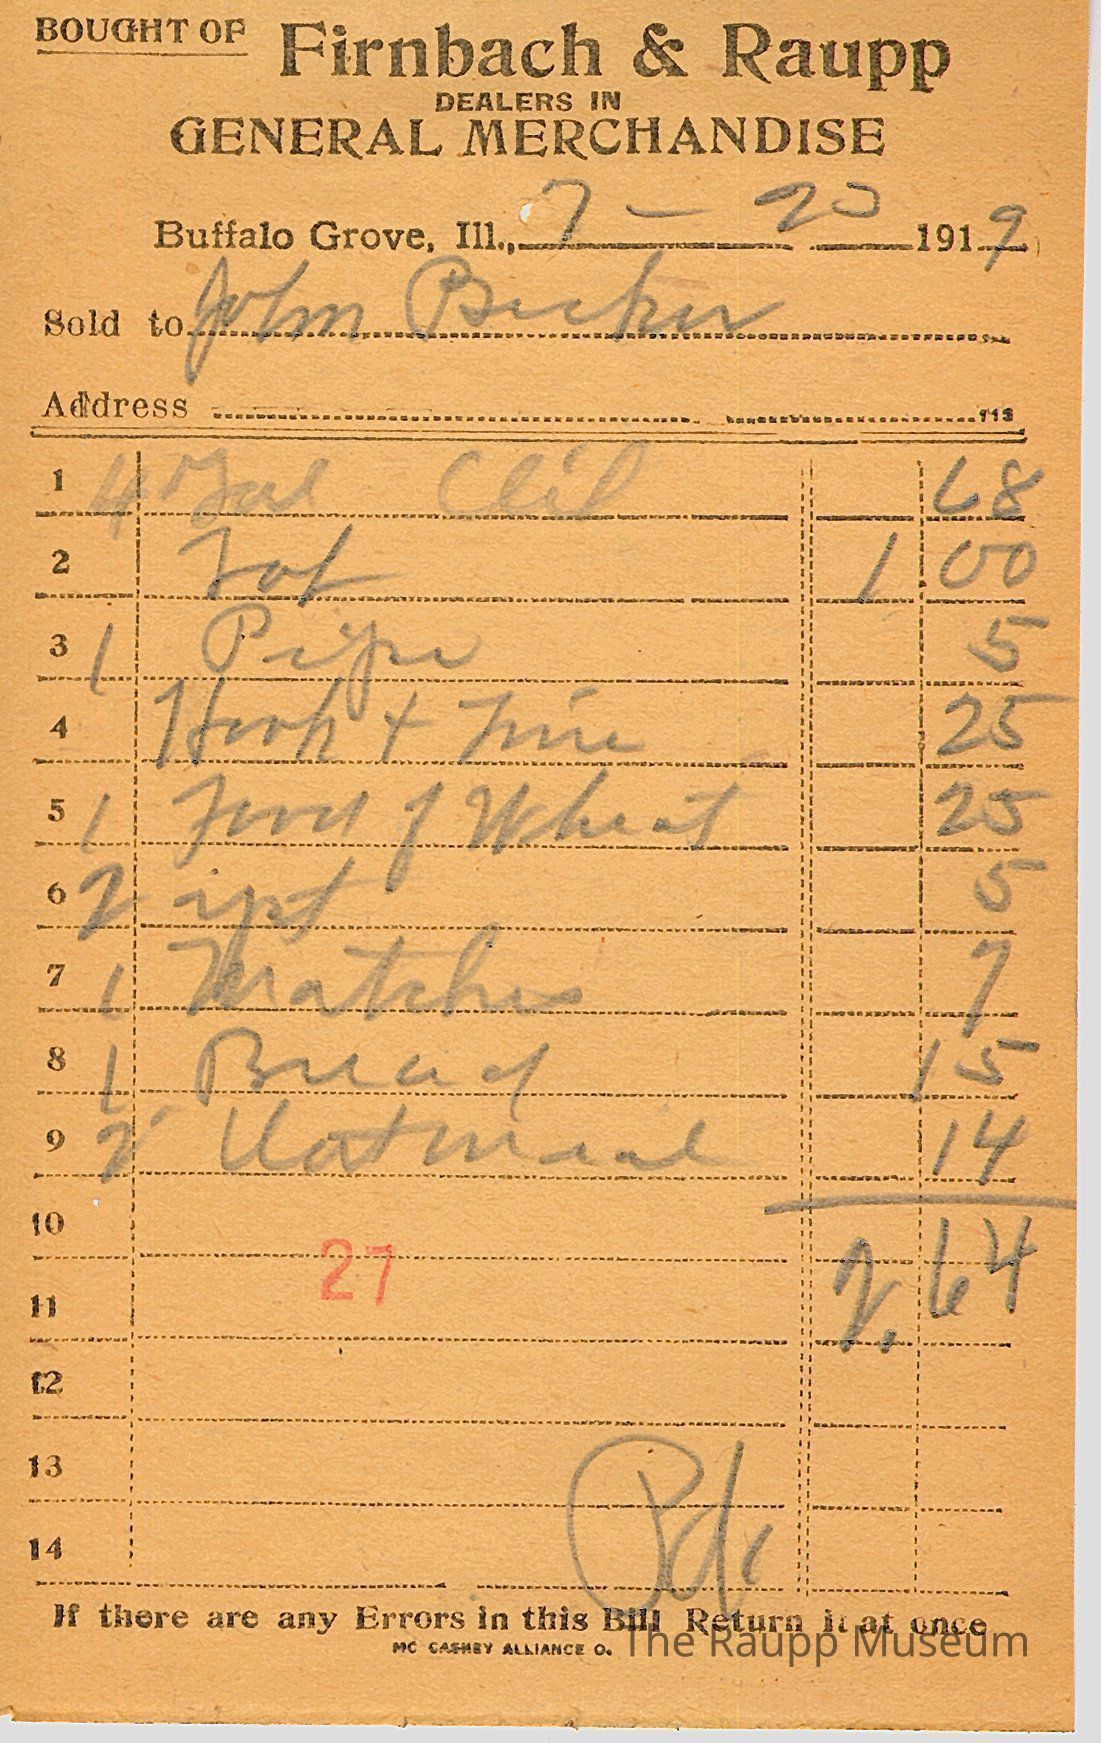 BOUGHT OF Firnbach & Raupp
DEALERS IN
GENERAL MERCHANDISE
Buffalo Grove, Ill., 7 - 20 1919
Sold to John Becker
Address 113
1 4 Gal Oil 68
2 1.00
3 1 Pipe 5
4 Hook + Line 25
5 1 Food of Wheat 25
6 2 5
7 1 Matches 7
8 1 Bread 15
9 2 Oatmeal 14
10 2.64
27
11
12
13
14
Pd
If there are any Errors in this Bill Return it at once
MC CASKEY ALLIANCE O.
The Raupp Museum